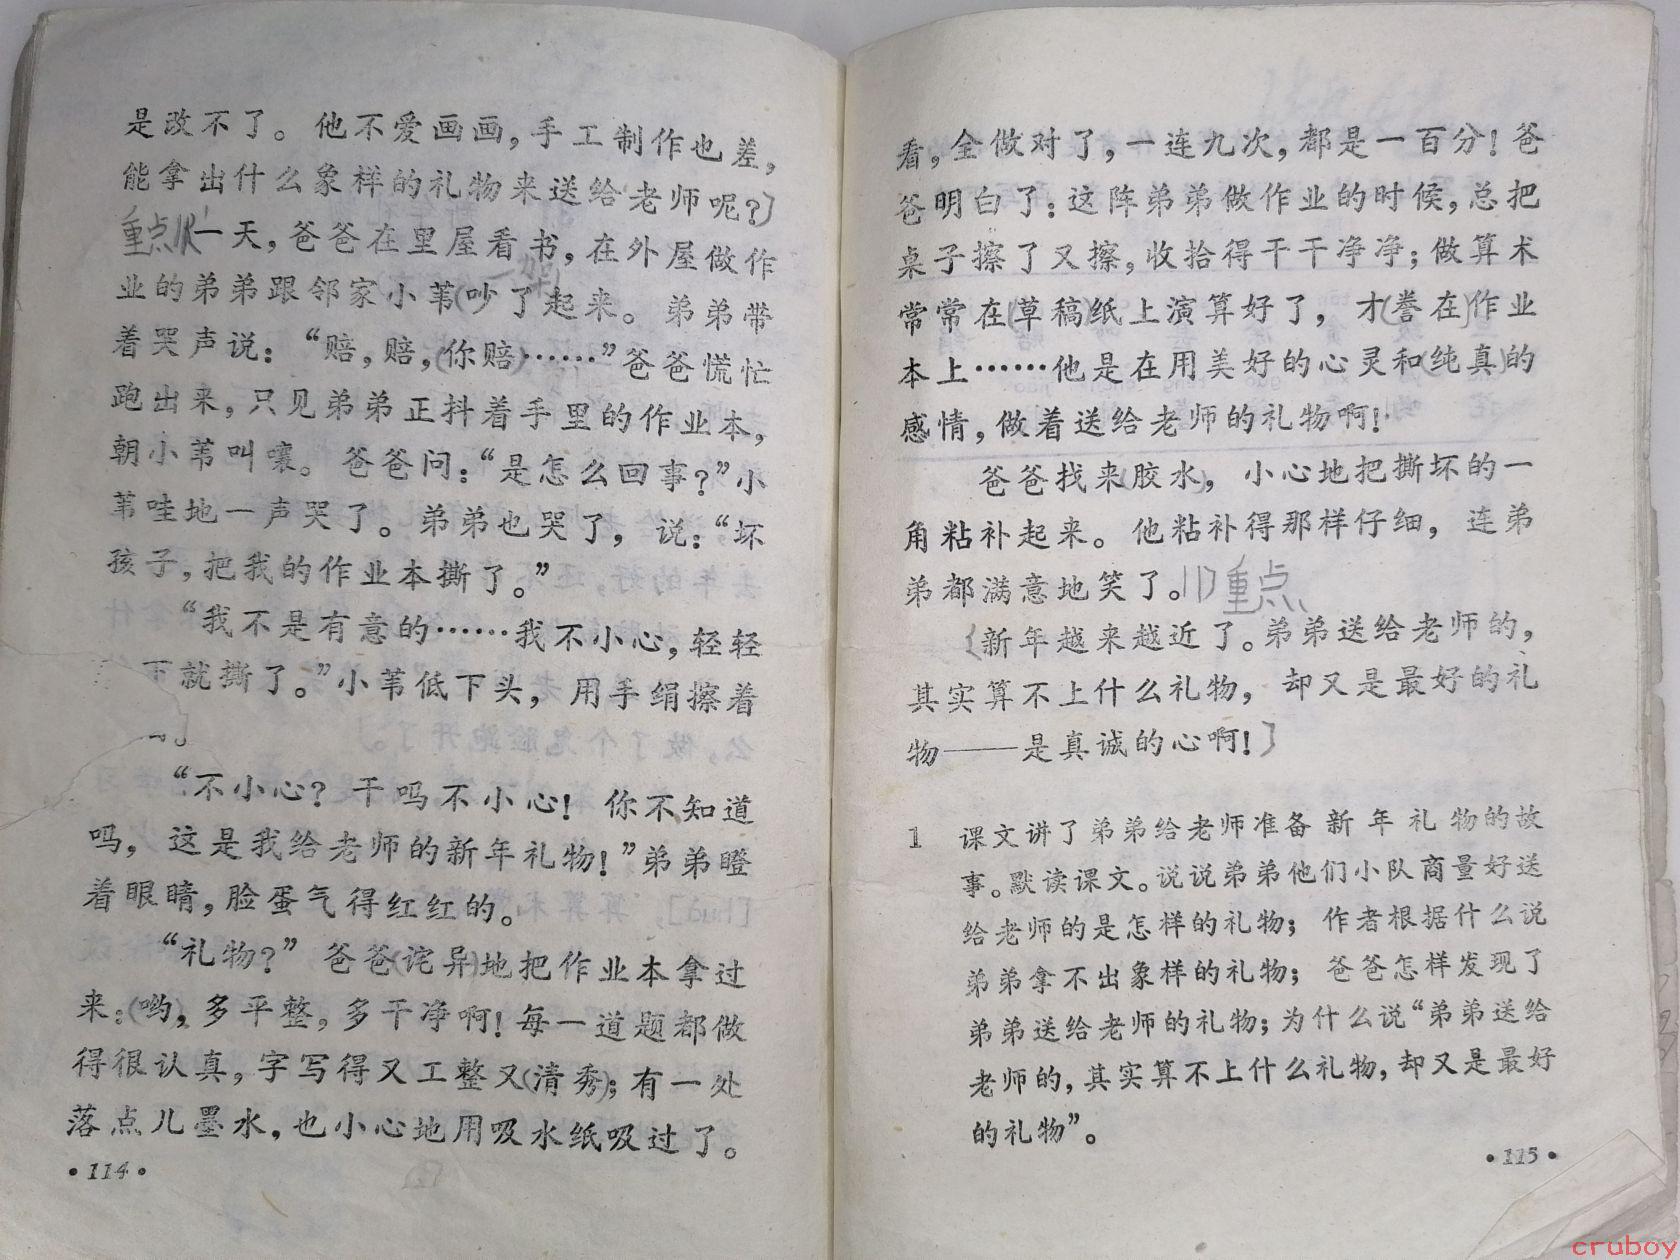 是改不了。他不爱画画，手工制作也差，
能拿出什么象样的礼物来送给老师呢？
重点 一天，爸爸在里屋看书，在外屋做作
业的弟弟跟邻家小苇吵了起来。弟弟带
着哭声说：“赔，赔，你赔……”爸爸慌忙
跑出来，只见弟弟正抖着手里的作业本，
朝小苇叫嚷。爸爸问：“是怎么回事？”小
苇哇地一声哭了。弟弟也哭了，说：“坏
孩子，把我的作业本撕了。”
“我不是有意的……我不小心，轻轻
下就撕了。”小苇低下头，用手绢擦着
“不小心？干吗不小心！你不知道
吗，这是我给老师的新年礼物！”弟弟瞪
着眼睛，脸蛋气得红红的。
“礼物？”爸爸诧异地把作业本拿过
来：哟，多平整，多干净啊！每一道题都做
得很认真，字写得又工整又清秀；有一处
落点儿墨水，也小心地用吸水纸吸过了。
·114·
看，全做对了，一连九次，都是一百分！爸
爸明白了：这阵弟弟做作业的时候，总把
桌子擦了又擦，收拾得干干净净；做算术
常常在草稿纸上演算好了，才誊在作业
本上……他是在用美好的心灵和纯真的
感情，做着送给老师的礼物啊！
爸爸找来胶水，小心地把撕坏的一
角粘补起来。他粘补得那样仔细，连弟
弟都满意地笑了。重点
新年越来越近了。弟弟送给老师的，
其实算不上什么礼物，却又是最好的礼
物——是真诚的心啊！
1 课文讲了弟弟给老师准备新年礼物的故
事。默读课文。说说弟弟他们小队商量好送
给老师的是怎样的礼物；作者根据什么说
弟弟拿不出象样的礼物；爸爸怎样发现了
弟弟送给老师的礼物；为什么说“弟弟送给
老师的，其实算不上什么礼物，却又是最好
的礼物”。
·115·
cruboy